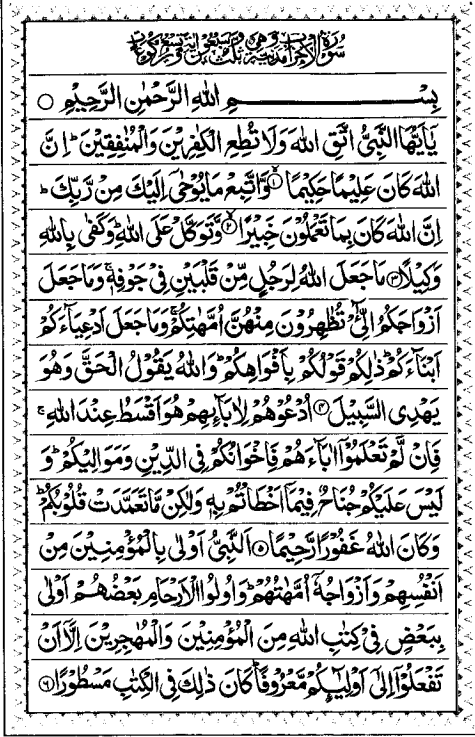 سُوْرَةُ الْاَحْزَابِ مَدَنِيَّةٌ وَّهِيَ ثَلٰثٌ وَّسَبْعُوْنَ اٰيَةً وَّتِسْعُ رُكُوْعَاتٍ
بِسْمِ اللّٰهِ الرَّحْمٰنِ الرَّحِيْمِ ○
يٰۤاَيُّهَا النَّبِيُّ اتَّقِ اللّٰهَ وَلَا تُطِعِ الْكٰفِرِيْنَ وَالْمُنٰفِقِيْنَ ؕ اِنَّ
اللّٰهَ كَانَ عَلِيْمًا حَكِيْمًا ۙ﴿۱﴾ وَّاتَّبِعْ مَا يُوْحٰۤى اِلَيْكَ مِنْ رَّبِّكَ ؕ
اِنَّ اللّٰهَ كَانَ بِمَا تَعْمَلُوْنَ خَبِيْرًا ۙ﴿۲﴾ وَّتَوَكَّلْ عَلَى اللّٰهِ ؕ وَكَفٰى بِاللّٰهِ
وَكِيْلًا ﴿۳﴾ مَا جَعَلَ اللّٰهُ لِرَجُلٍ مِّنْ قَلْبَيْنِ فِيْ جَوْفِهٖ ۚ وَمَا جَعَلَ
اَزْوَاجَكُمُ الّٰٓـِٔيْ تُظٰهِرُوْنَ مِنْهُنَّ اُمَّهٰتِكُمْ ۚ وَمَا جَعَلَ اَدْعِيَآءَكُمْ
اَبْنَآءَكُمْ ؕ ذٰلِكُمْ قَوْلُكُمْ بِاَفْوَاهِكُمْ ؕ وَاللّٰهُ يَقُوْلُ الْحَقَّ وَهُوَ
يَهْدِي السَّبِيْلَ ﴿۴﴾ اُدْعُوْهُمْ لِاٰبَآئِهِمْ هُوَ اَقْسَطُ عِنْدَ اللّٰهِ ۚ
فَاِنْ لَّمْ تَعْلَمُوْۤا اٰبَآءَهُمْ فَاِخْوَانُكُمْ فِي الدِّيْنِ وَمَوَالِيْكُمْ ؕ وَ
لَيْسَ عَلَيْكُمْ جُنَاحٌ فِيْمَاۤ اَخْطَاْتُمْ بِهٖ وَلٰكِنْ مَّا تَعَمَّدَتْ قُلُوْبُكُمْ ؕ
وَكَانَ اللّٰهُ غَفُوْرًا رَّحِيْمًا ﴿۵﴾ اَلنَّبِيُّ اَوْلٰى بِالْمُؤْمِنِيْنَ مِنْ
اَنْفُسِهِمْ وَاَزْوَاجُهٗۤ اُمَّهٰتُهُمْ ؕ وَاُولُوا الْاَرْحَامِ بَعْضُهُمْ اَوْلٰى
بِبَعْضٍ فِيْ كِتٰبِ اللّٰهِ مِنَ الْمُؤْمِنِيْنَ وَالْمُهٰجِرِيْنَ اِلَّاۤ اَنْ
تَفْعَلُوْۤا اِلٰۤى اَوْلِيٰٓئِكُمْ مَّعْرُوْفًا ؕ كَانَ ذٰلِكَ فِي الْكِتٰبِ مَسْطُوْرًا ﴿۶﴾